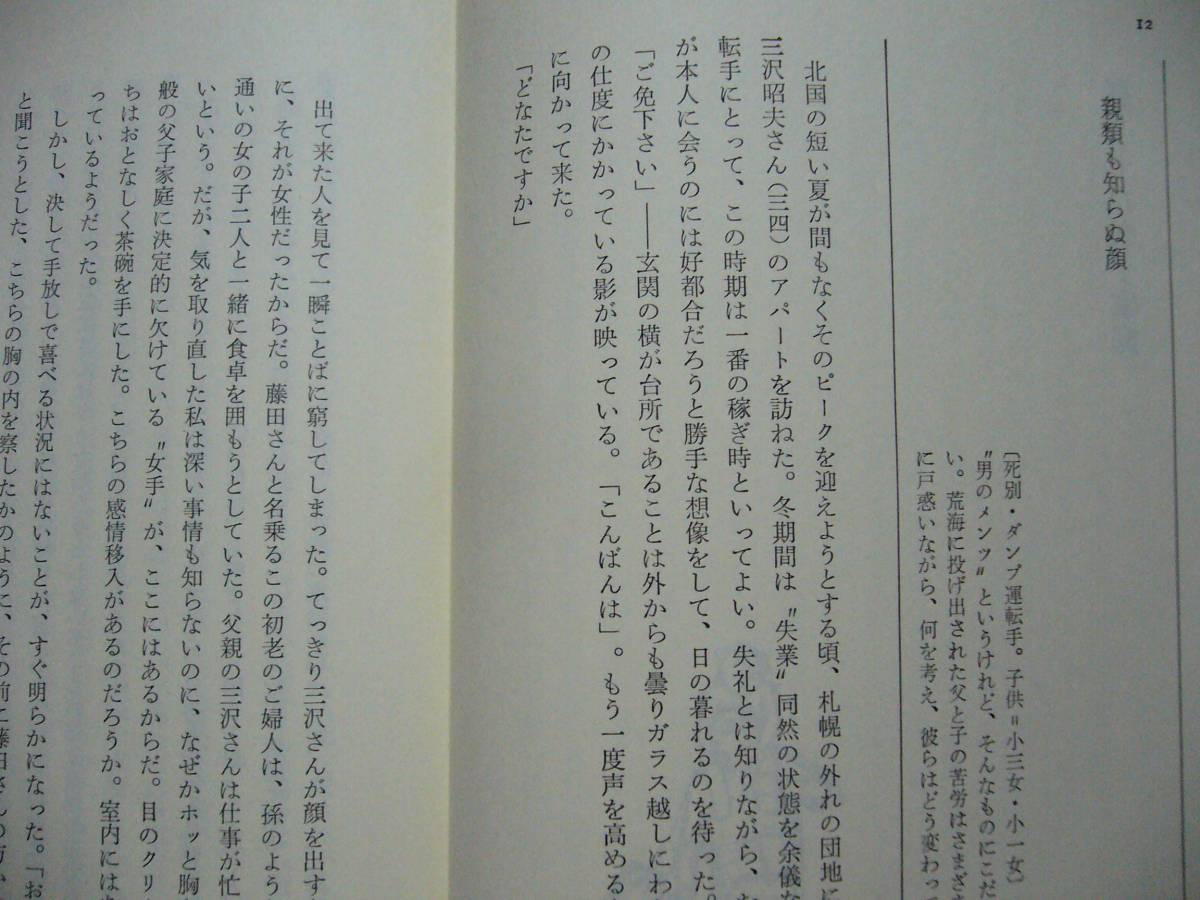 12
親類も知らぬ顔
〔死別・ダンプ運転手。子供＝小三女・小一女〕
〝男のメンツ〟というけれど、そんなものにこだ
い。荒海に投げ出された父と子の苦労はさまざま
に戸惑いながら、何を考え、彼らはどう変わって
北国の短い夏が間もなくそのピークを迎えようとする頃、札幌の外れの団地に
三沢昭夫さん（三四）のアパートを訪ねた。冬期間は〝失業〟同然の状態を余儀な
転手にとって、この時期は一番の稼ぎ時といってよい。失礼とは知りながら、
が本人に会うのには好都合だろうと勝手な想像をして、日の暮れるのを待った。
「ご免下さい」――玄関の横が台所であることは外からも曇りガラス越しにわ
の仕度にかかっている影が映っている。「こんばんは」。もう一度声を高める
に向かって来た。
「どなたですか」
出て来た人を見て一瞬ことばに窮してしまった。てっきり三沢さんが顔を出す
に、それが女性だったからだ。藤田さんと名乗るこの初老のご婦人は、孫のよう
通いの女の子二人と一緒に食卓を囲もうとしていた。父親の三沢さんは仕事が忙
いという。だが、気を取り直した私は深い事情も知らないのに、なぜかホッと胸
般の父子家庭に決定的に欠けている〝女手〟が、ここにはあるからだ。目のクリ
ちはおとなしく茶碗を手にした。こちらの感情移入があるのだろうか。室内には
っているようだった。
しかし、決して手放しで喜べる状況にはないことが、すぐ明らかになった。「お
と聞こうとした、こちらの胸の内を察したかのように、その前に藤田さんの方